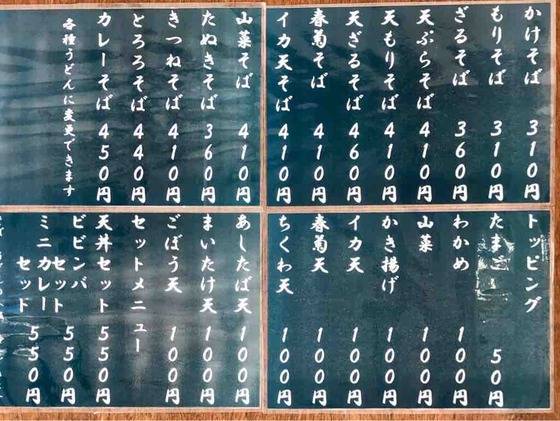 かけそば 310円
もりそば 310円
ざるそば 360円
天ぷらそば 410円
天もりそば 410円
天ざるそば 460円
春菊そば 410円
イカ天そば 410円
山菜そば 410円
たぬきそば 360円
きつねそば 410円
とろろそば 440円
カレーそば 450円
各種うどんに変更できます
トッピング
たまご 50円
わかめ 100円
山菜 100円
かき揚げ 100円
イカ天 100円
春菊天 100円
ちくわ天 100円
あしたば天 100円
まいたけ天 100円
ごぼう天 100円
セットメニュー
天丼セット 550円
ビビンバ
セット 550円
ミニカレー
セット 550円